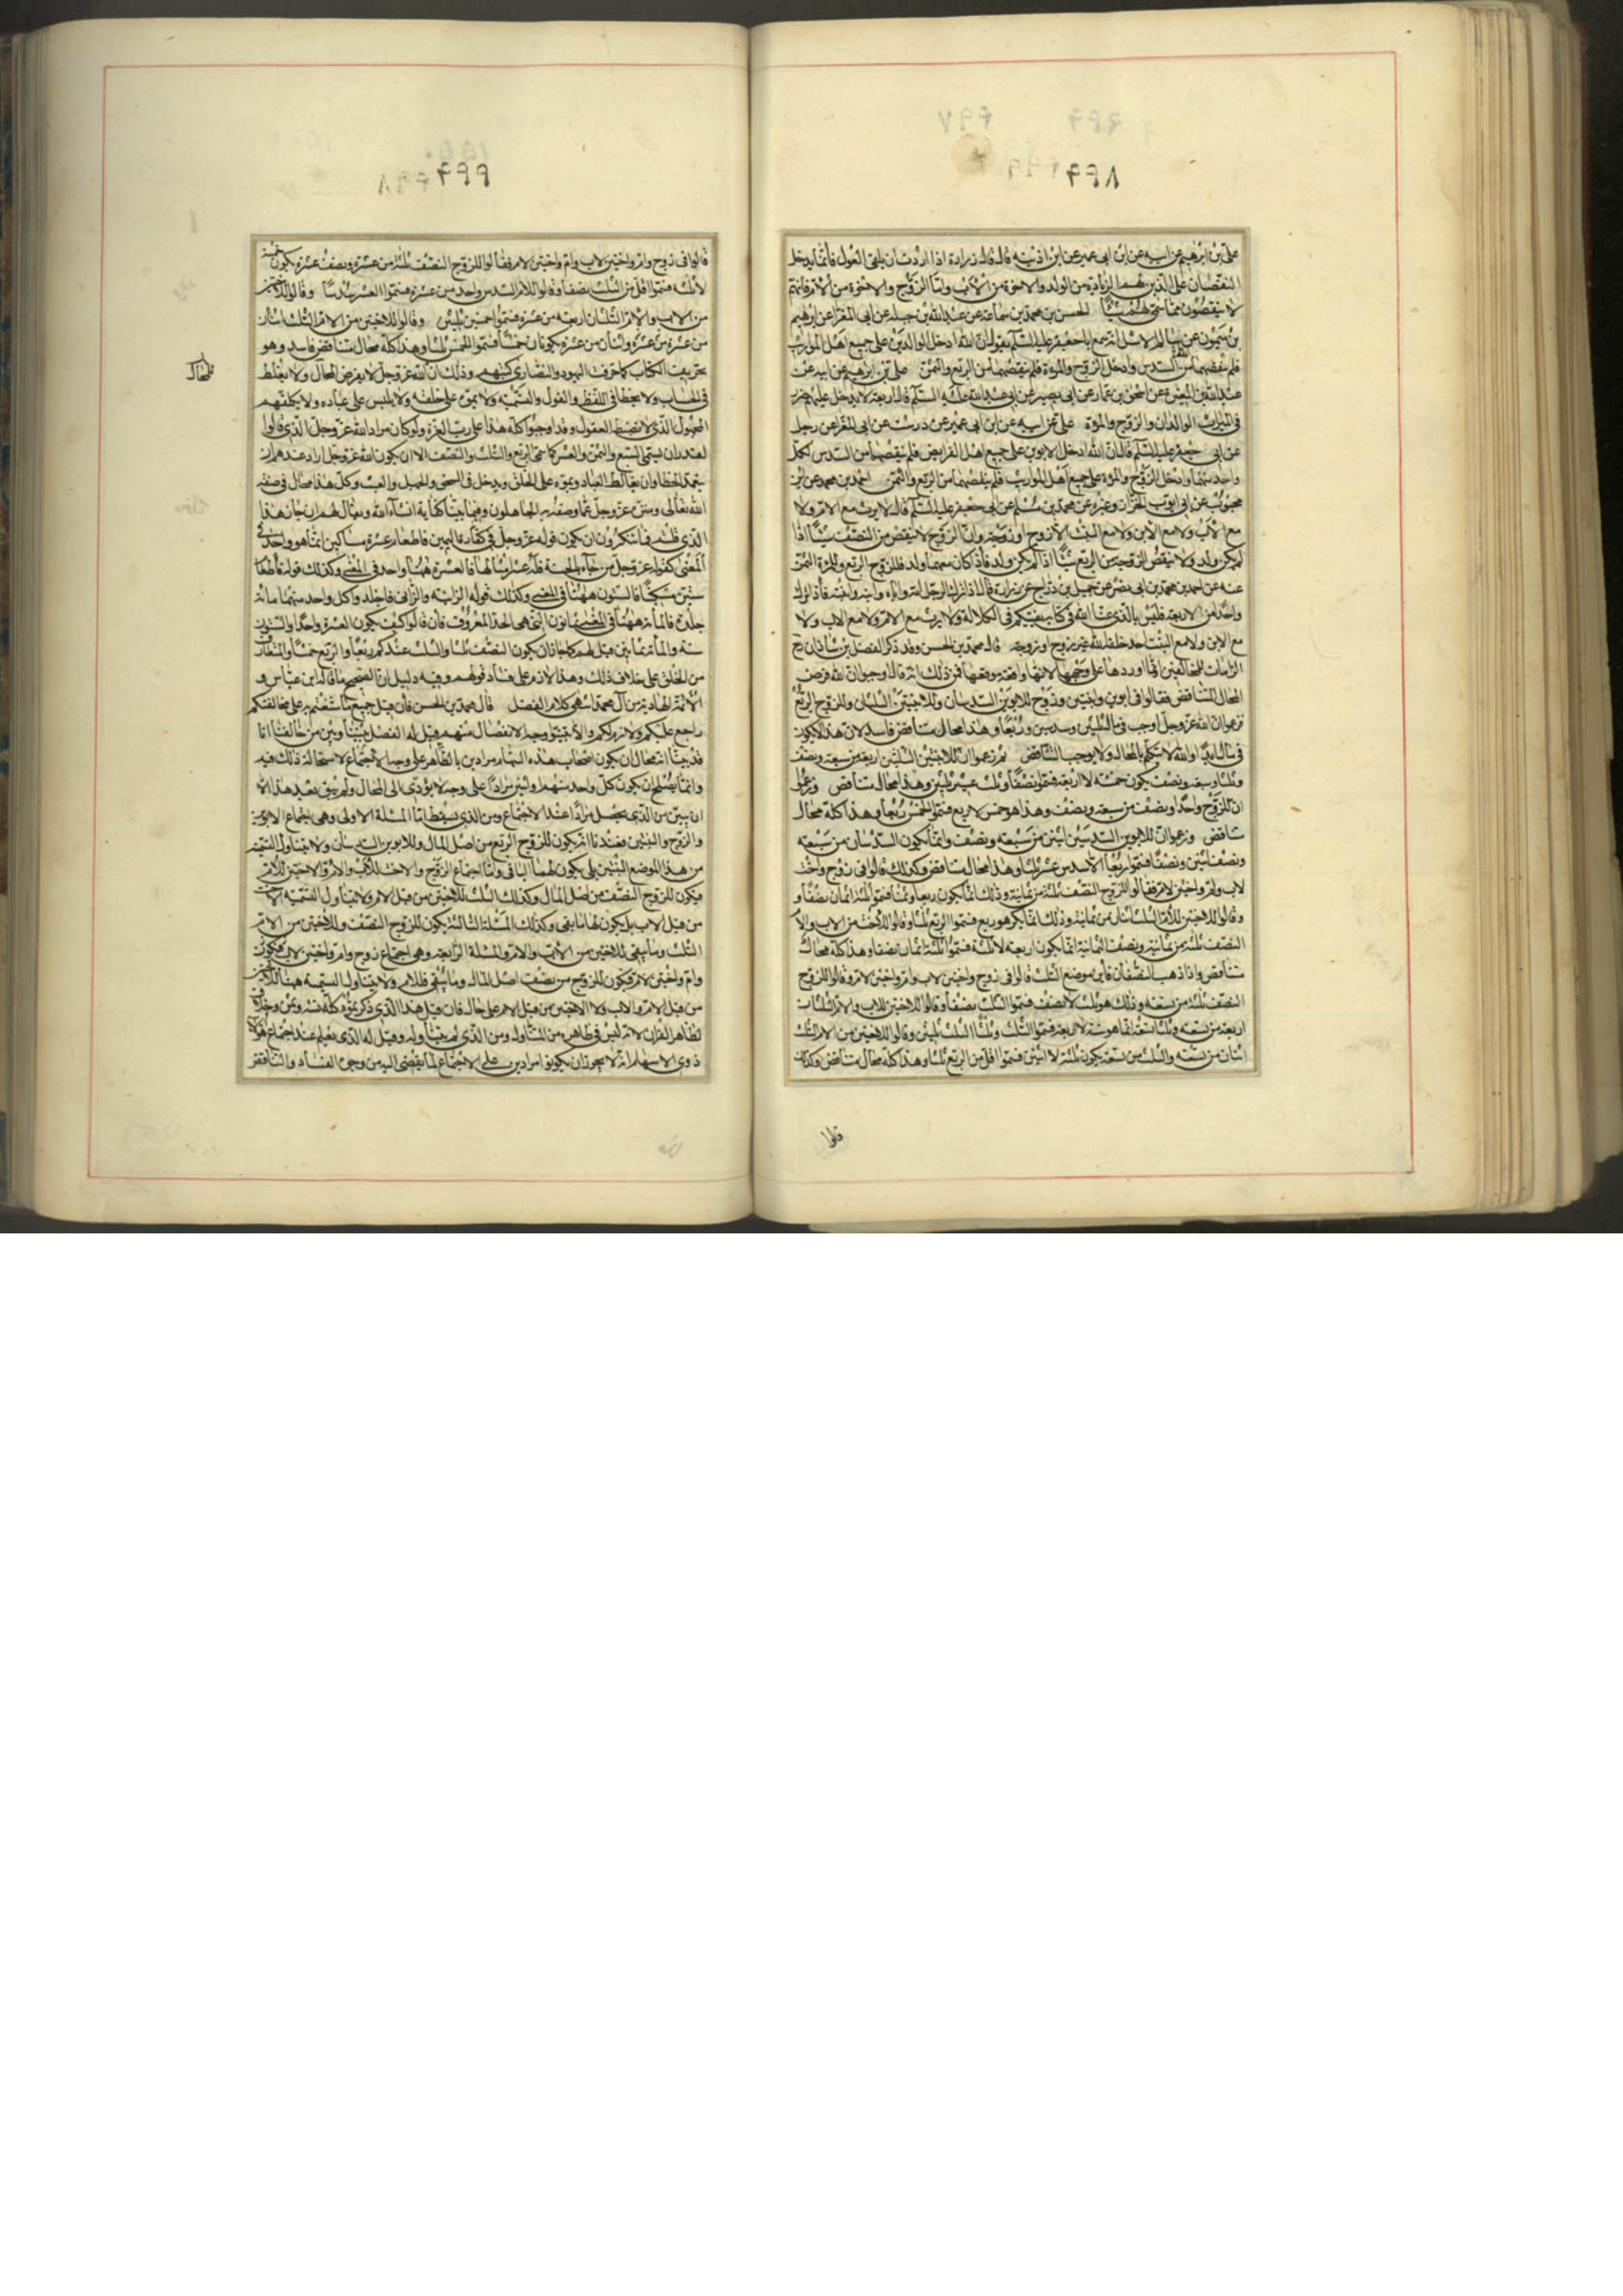 علي بن ابرهيم عن ابيه عن ابن ابي عمير عن ابن اذينة قال قال زرارة اذا اردت ان تلقي العول فانما يدخل
النقصان على الذين لهم الزيادة من الولد والاخوة من الاب واما الزوج والاخوة من الام فانهم
لا ينقصون مما سمى لهم شيئا الحسن بن محمد بن سماعة عن عبد الله بن جبلة عن ابي المغرا عن ابرهيم
بن ميمون عن سالم الاشل انه سمع ابا جعفر عليه السلم يقول ان الله ادخل الوالدين على جميع اهل المواريث
فلم ينقصهما من السدس وادخل الزوج والمرءة فلم ينقصهما من الربع والثمن علي بن ابرهيم عن ابيه عن
عبد الله بن المغيرة عن اسحق بن عمار عن ابي بصير عن ابي عبد الله عليه السلم قال اربعة لا يدخل عليهم ضرر
في الميراث الوالدان والزوج والمرءة علي عن ابيه عن ابن ابي عمير عن درست عن ابي المغرا عن رجل
عن ابي جعفر عليه السلم قال ان الله ادخل الابوين على جميع اهل الفرايض فلم ينقصهما من السدس لكل
واحد منهما وادخل الزوج والمرءة على جميع اهل المواريث فلم ينقصهما من الربع والثمن احمد بن محمد عن ابن
محبوب عن ابي ايوب الخزاز وغيره عن محمد بن مسلم عن ابي جعفر عليه السلم قال لا يرث مع الام ولا
مع الاب ولا مع الابن ولا مع البنت الا زوج او زوجة وان الزوج لا ينقص من النصف شيئا اذا
لم يكن ولد ولا ينقص الزوجة من الربع شيئا اذا لم يكن ولد فاذا كان معهما ولد فللزوج الربع وللمرءة الثمن
عنه عن احمد بن محمد بن ابي نصر عن جميل بن دراج عن زرارة قال اذا ترك الرجل امه واباه وابنه وابنته فاذا ترك
واحدا من الاربعة فليس بالذي عنا الله في كتابه يفتيكم في الكلالة ولا يرث مع الام ولا مع الاب ولا
مع الابن ولا مع البنت احد خلقه الله غير زوج او زوجة قال محمد بن الحسن وقد ذكر الفضل بن شاذان
الزامات للمخالفين انا اوردها على وجهها لانها واقعة موقعها فمن ذلك انه قال وجدوا ان الله فرض
المحال المتناقض فقالوا في ابوين وابنتين وزوج للابوين السدسان وللابنتين الثلثان وللزوج الربع
زعموا ان الله عز وجل اوجب في مال ثلثين وسدسين وربعا وهذا محال متناقض فاسد لان هذا لا يكون
في مال ابدا والله لا يتكلم بالمحال ولا يوجب التناقض ثم زعموا ان للابنتين الثلثين اربعة من سبعة ونصف
وثلثا وسبعة ونصف يكون خمسة لا اربعة فسموا نصفا وثلث عشر ثلثين وهذا محال متناقض وزعموا
ان للزوج واحدا ونصف من سبعة ونصف وهذا هو خمس لا ربع فسموا الخمس ربعا وهذا كله محال
متناقض وزعموا ان للابوين السدسين اثنين من سبعة ونصف وانما يكون السدسان من سبعة
ونصف اثنين ونصفا فسموا ربعا الا سدس عشر ثلثا وهذا محال متناقض وكذلك قالوا في زوج واخت
لاب وام واختين لام فقالوا للزوج النصف ثلثة من ثمانية وذلك انما يكون ربعا وثمنا فسموا ثلثة اثمان نصفا و
وقالوا للاختين للام الثلث اثنان من ثمانية وذلك انما يكون هو ربع فسموا الربع ثلثا وقالوا للاخت من الاب والام
النصف ثلثة من ثمانية ونصف الثمانية انما يكون اربعة لا ثلثة فسموا ثلثة اثمان نصفا وهذا كله محال
متناقض واذا ذهب النصفان فاين موضع الثلث قالوا في زوج واختين لاب وام واختين لام وقالوا للزوج
النصف ثلثة من تسعة وذلك هو ثلث لا نصف فسموا الثلث نصفا وقالوا للاختين للاب والام الثلثان
اربعة من تسعة وثلثا تسعة انما هو ستة لا اربعة فسموا الثلث وثلثا الثلث ثلثين وقالوا للاختين من الام الثلث
اثنان من تسعة والثلث من تسعة يكون ثلثة لا اثنين فسموا اقل من الربع ثلثا وهذا كله محال متناقض وكذلك
قالوا
قالوا في زوج وام واختين لاب وام واختين لام فقالوا للزوج النصف ثلثة من عشرة ونصف عشرة يكون خمسة
لا ثلثة فسموا اقل من الثلث نصفا وقالوا للام السدس واحد من عشرة فسموا العشر سدسا وقالوا للاختين
من الاب والام الثلثان اربعة من عشرة فسموا خمسين ثلثين وقالوا للاختين من الام الثلث اثنان
من عشرة من عشرة واثنان من عشرة يكونان خمسا فسموا الخمس ثلثا وهذا كله محال متناقض فاسد وهو
تحريف الكتاب كما حرفت اليهود والنصارى كتبهم وذلك ان الله عز وجل لا يفرض المحال ولا يغلط
في الحساب ولا يخطا في اللفظ والقول والتسمية ولا يموه على خلقه ولا يلبس على عباده ولا يكلفهم
المجهول الذي لا يضبطه العقول وقد اوجبوا كله هذا على رب العزة ولو كان مراد الله عز وجل الذي قالوا
لقدر ان يسمي السبع والثمن والعشر كما سمى الربع والثلث والنصف الا ان يكون الله عز وجل اراد عندهم ان
يتعمد الخطا وان يغالط العباد ويموه على الخلق ويدخل في السخف والجهل والعبث وكل هذا محال في صفة
الله تعالى ومنفي عنه عز وجل عما وصفه به الجاهلون وفيما بينا كفاية ان شاء الله ويقال لهم ان جاز هذا
الذي قلتم فما تنكرون ان يكون قوله عز وجل في كفارة اليمين فاطعام عشرة مساكين انما هو واحد في
المعنى كقوله عز وجل من جاء بالحسنة فله عشر امثالها فالعشرة ههنا واحد في المعنى وكذلك قوله فاطعام
ستين مسكينا فالستون ههنا في المعنى وكذلك قوله الزانية والزاني فاجلدوا كل واحد منهما مائة
جلدة فالمائة ههنا في المعنى ثمانون التي هي الحد المعروف فان قالوا كيف يكون العشرة واحدا والستون
ستة والمائة ثمانين قيل لهم كما جاز ان يكون النصف ثلثا والثلث عندكم ربعا والربع خمسا والمتعارف
من الخلق على خلاف ذلك وهذا لازم على فساد قولهم وفيه دليل ان الصحيح ما قاله ابن عباس و
الائمة الهادية من آل محمد انتهى كلام الفضل قال محمد بن الحسن فان قيل جميع ما شنعتم به على مخالفيكم
راجع عليكم ولازم لكم والا بينوا وجه الانفصال منهم وقيل له الفصل بيننا وبين من خالفنا انا
قد بينا انه محال ان يكون اصحاب هذه السهام مرادين بالظاهر على وجه الاجتماع لاستحالة ذلك فيه
وانما يصلح ان يكون كل واحد منهم اولين مرادا على وجه لا يؤدي الى المحال ولم يبق بعد هذا الا
ان نبين من الذي يحصل مرادا عند الاجتماع ومن الذي يسقط اما المسئلة الاولى وهي اجتماع الابوين
والزوج والبنتين فعندنا انه يكون للزوج الربع من اصل المال وللابوين السدسان ولا يتناول التسمية
من هذا الموضع البنتين بل يكون لهما الباقي واما اجتماع الزوج والاخت للاب والام والاختين للام
فيكون للزوج النصف من اصل المال وكذلك الثلث للاختين من قبل الام ولا يتناول التسمية الاخت
من قبل الاب بل يكون لها ما بقى وكذلك المسئلة الثالثة يكون للزوج النصف وللاختين من الام
الثلث وما يبقى للاختين من الاب والام والمسئلة الرابعة وهي اجتماع زوج وام واختين لاب فيكون
وام واختين لام فيكون للزوج من نصف اصل المال وما يبقى فللام ولا يتناول التسمية ههنا للاختين
من قبل الام والاب ولا الاختين من قبل الام على حال فان قيل هذا الذي ذكرتموه كله نسة ومن وجداه في
لظاهر القران لانه ليس في ظاهره من المتناوله ومن الذي لم يتناوله وقيل له الذي يعلم عند اجتماع هؤلاء
ذوي الاسهام انه لا يجوز ان يكونوا مرادين على الاجتماع لما يفضي اليه من وجوه الفساد والتناقض